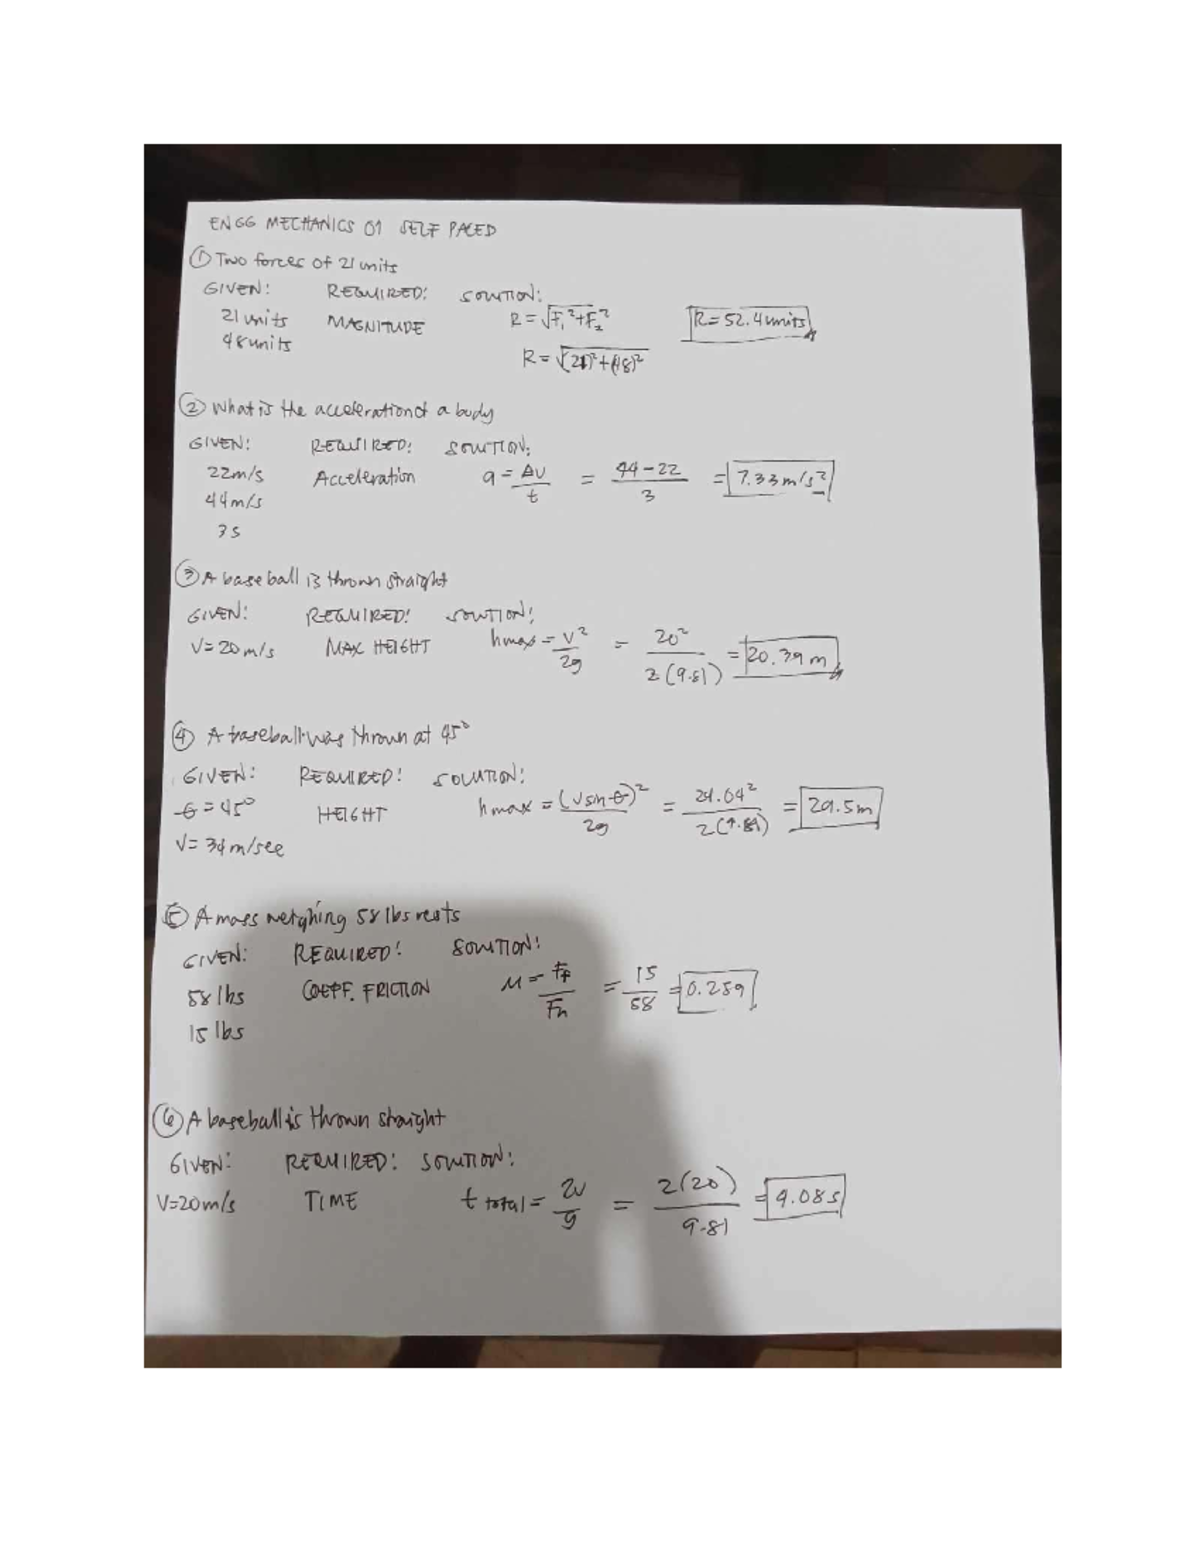 ENGG MECHANICS 01 SELF PACED
① Two forces of 21 units
GIVEN: REQUIRED: SOLUTION:
21 units MAGNITUDE R = √F₁²+F₂² R = 52.4 units
48 units
R = √(21)²+(48)²
② What is the acceleration of a body
GIVEN: REQUIRED: SOLUTION:
22 m/s Acceleration a = Δv/t = 44-22/3 = 7.33 m/s²
44 m/s
3s
③ A baseball is thrown straight
GIVEN: REQUIRED: SOLUTION:
V = 20 m/s MAX HEIGHT hmax = V²/2g = 20²/2(9.81) = 20.39 m
④ A baseball was thrown at 45°
GIVEN: REQUIRED: SOLUTION:
θ = 45° HEIGHT hmax = (Vsinθ)²/2g = 24.04²/2(9.81) = 29.5m
V = 34 m/sec
⑤ A mass weighing 58 lbs rests
GIVEN: REQUIRED: SOLUTION:
58 lbs COEFF. FRICTION μ = Ff/Fn = 15/58 = 0.259
15 lbs
⑥ A baseball is thrown straight
GIVEN: REQUIRED: SOLUTION:
V=20m/s TIME t total = 2V/g = 2(20)/9.81 = 4.08s